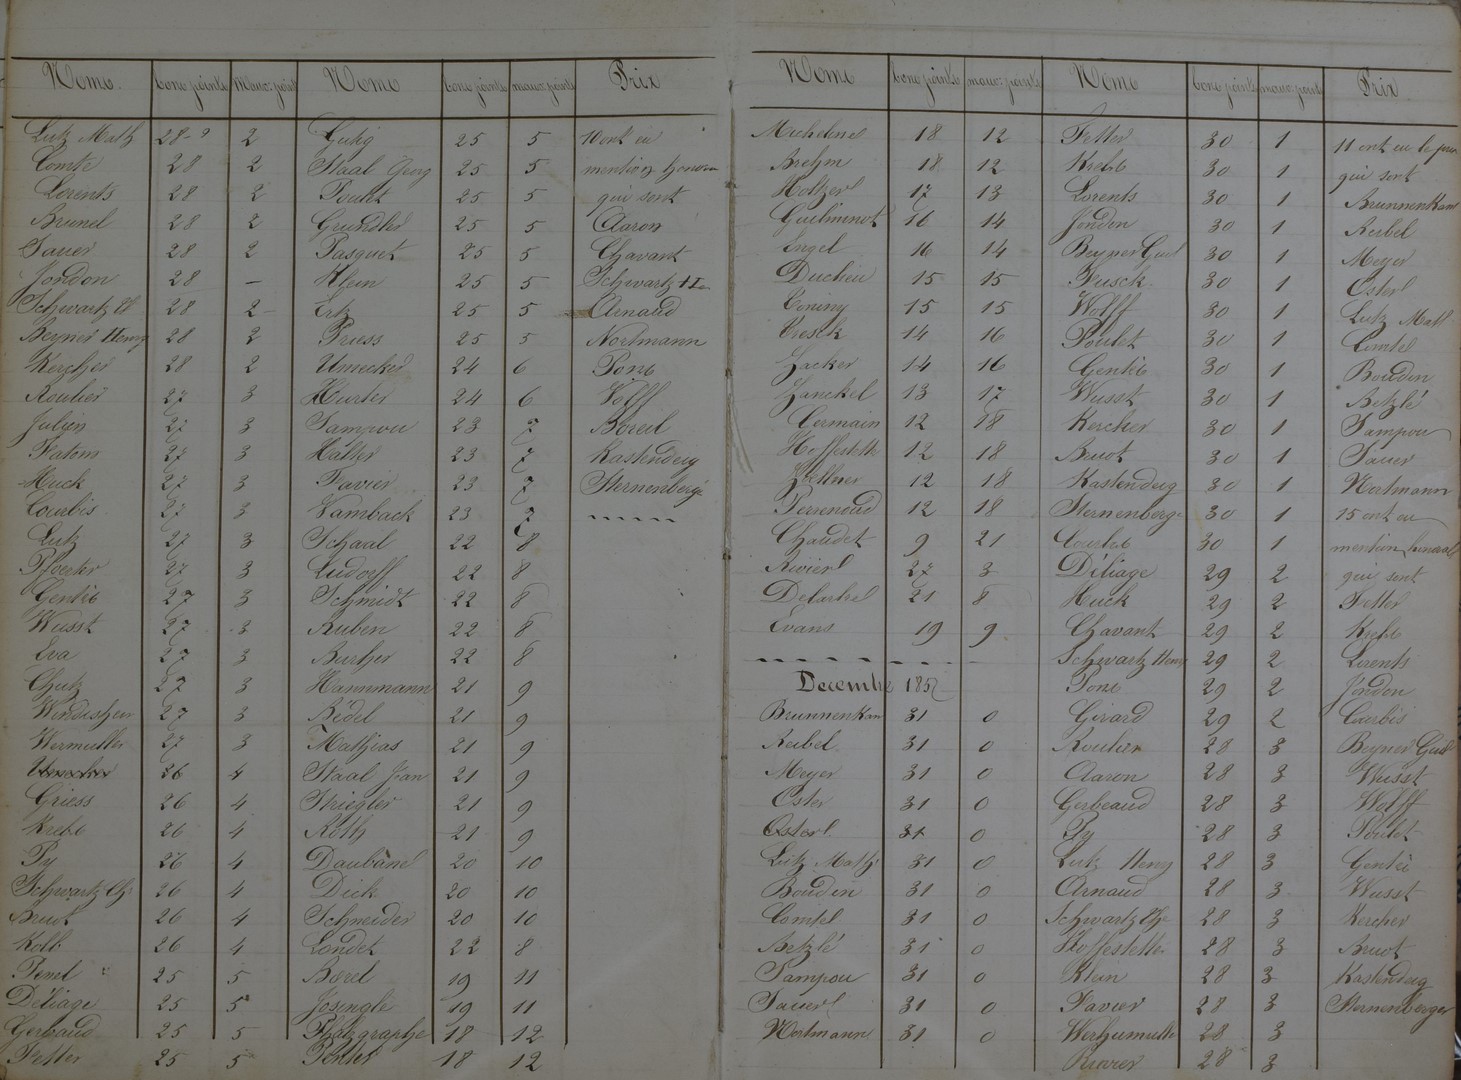 Noms. bons points Mauv: points Noms bons points mauv: points Prix
Lutz Math 28 2 25 5 10 ont eu
Comte 28 2 Staal Georg 25 5 mention
Lorents 28 2 25 5 qui sont
Brunel 28 2 Grundler 25 5 Aaron
Sauer 28 2 Pasquet 25 5 Chavant
Jondon 28 – Klein 25 5 Schwartz
Schwartz 28 2 Ertz 25 5 Arnaud
Beyner Henry 28 2 Priess 25 5 Nortmann
Kercher 28 2 24 6 Pons
Roulier 27 3 Hurter 24 6 Wolff
Julien 27 3 Sampou 23 7 Boreil
27 3 Halter 23 7 Kastendeug
Huck 27 3 Favier 23 7 Sternenberge
Courbis 27 3 Vamback 23 7
Lutz 27 3 Schaal 22 8
27 3 Ludorff 22 8
Gentis 27 3 Schmidt 22 8
Wusst 27 3 Ruben 22 8
Eva 27 3 22 8
27 3 Hannmann 21 9
27 3 Bidel 21 9
27 3 Mathias 21 9
26 4 Staal Jean 21 9
Griess 26 4 Striegler 21 9
Krebs 26 4 Roth 21 9
Py 26 4 Daubanel 20 10
Schwartz 26 4 Dick 20 10
Bruot 26 4 Schneider 20 10
Kolb 26 4 Londet 22 8
25 5 Borel 19 11
Déliage 25 5 19 11
Gerbaud 25 5 18 12
Fetter 25 5 18 12
Noms bons points mauv: points Noms bons points mauv: points Prix
Michelend 18 12 Fetter 30 1 11 ont eu le
Brehm 18 12 Krebs 30 1 qui sont
Holtzerl 17 13 Lorents 30 1 Brunnenkam
Guilminot 16 14 Jondon 30 1 Reibel
Engel 16 14 Beyner Guil 30 1 Meyer
15 15 Fusck 30 1 Osterl
15 15 Wolff 30 1 Lutz Math
14 16 Poulet 30 1 Comtel
Zacker 14 16 Gentis 30 1 Boudon
Zanckel 13 17 Wusst 30 1 Betzlé
Germain 12 18 Kercher 30 1 Sampou
Hoffestette 12 18 Bruot 30 1 Sauer
Zoellner 12 18 Kastendeug 30 1 Nortmann
Perrenoud 12 18 Sternenberge 30 1 15 ont eu
Chaudet 9 21 30 1 mention
Rivierl 27 3 Déliage 29 2 qui sont
21 8 Huck 29 2 Fetter
Evans 19 9 Chavant 29 2 Krebs
Schwartz Henry 29 2 Lorents
Decembre 1852 Pons 29 2 Jondon
Brunnenkam 31 0 Girard 29 2 Courbis
Reibel 31 0 Roulier 28 3 Beyner Guil
Meyer 31 0 Aaron 28 3 Wusst
Oster 31 0 Gerbeaud 28 3 Wolff
Osterl 31 0 Py 28 3 Poulet
Lutz Math 31 0 Lutz Henry 28 3 Gentis
Boudon 31 0 Arnaud 28 3 Wusst
Comtel 31 0 Schwartz 28 3 Kercher
Betzlé 31 0 Hoffestette 28 3 Bruot
Sampou 31 0 Klein 28 3 Kastendeug
Sauerl 31 0 Favier 28 3 Sternenberger
Nortmann 31 0 28 3
Rivier 28 3